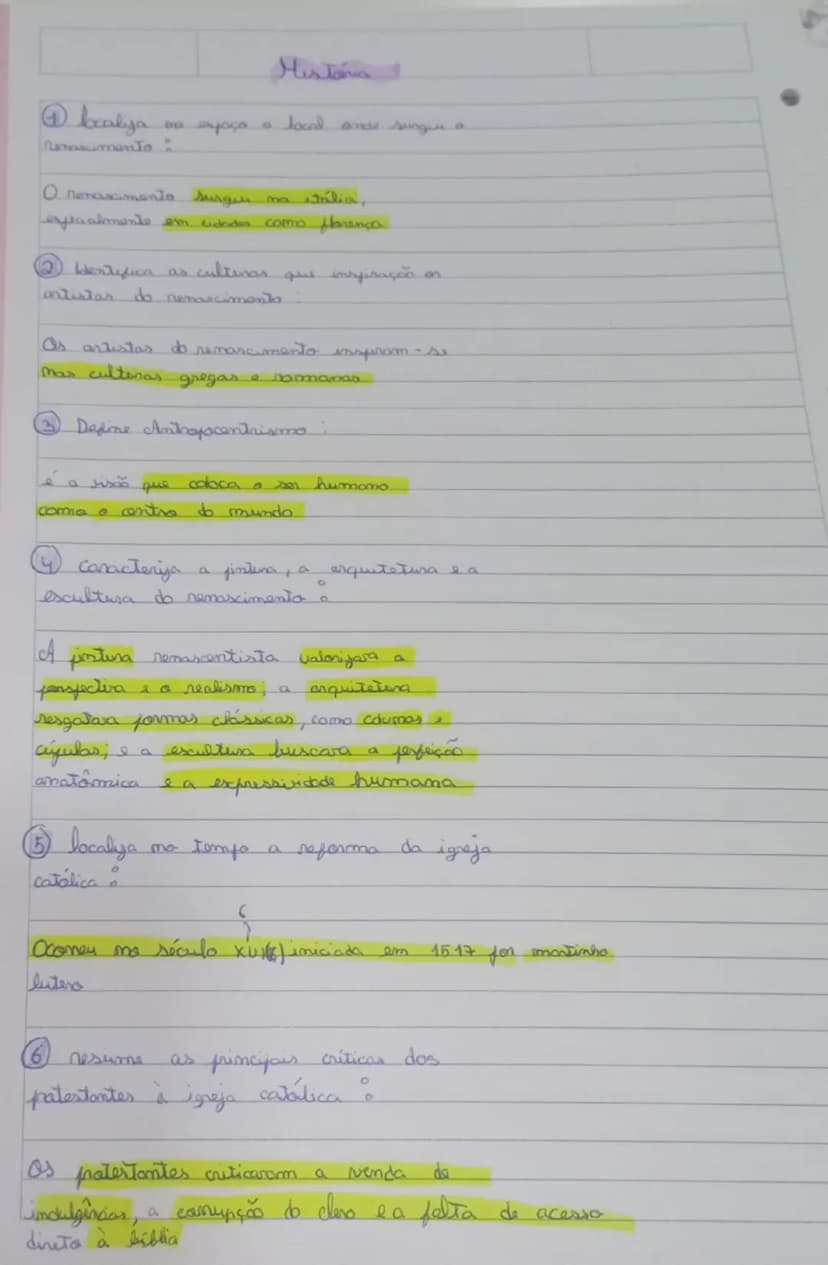 História
① localiza no espaço o local onde surgiu o
renascimento :
O renascimento surgiu na itália,
especialmente em cidades como florença
② Identifica as culturas que inspiração os
artistas do renascimento :
Os artistas do renascimento inspiram-se
nas culturas gregas e romanas
③ Define Antropocentrismo :
é a visão que coloca o ser humano
como o centro do mundo
④ Caracteriza a pintura, a arquitetura e a
escultura do renascimento :
A pintura renascentista valorizava a
perspectiva e o realismo; a arquitetura
resgatava formas clássicas, como colunas e
cúpulas; e a escultura buscava a perfeição
anatômica e a expressividade humana
⑤ localiza no tempo a reforma da igreja
católica :
6
Ocorreu no século XVI iniciada em 1517 por martinho
lutero
⑥ resume as principais críticas dos
protestantes à igreja católica :
Os protestantes criticavam a venda de
indulgências, a corrupção do clero e a falta de acesso
direto à bíblia